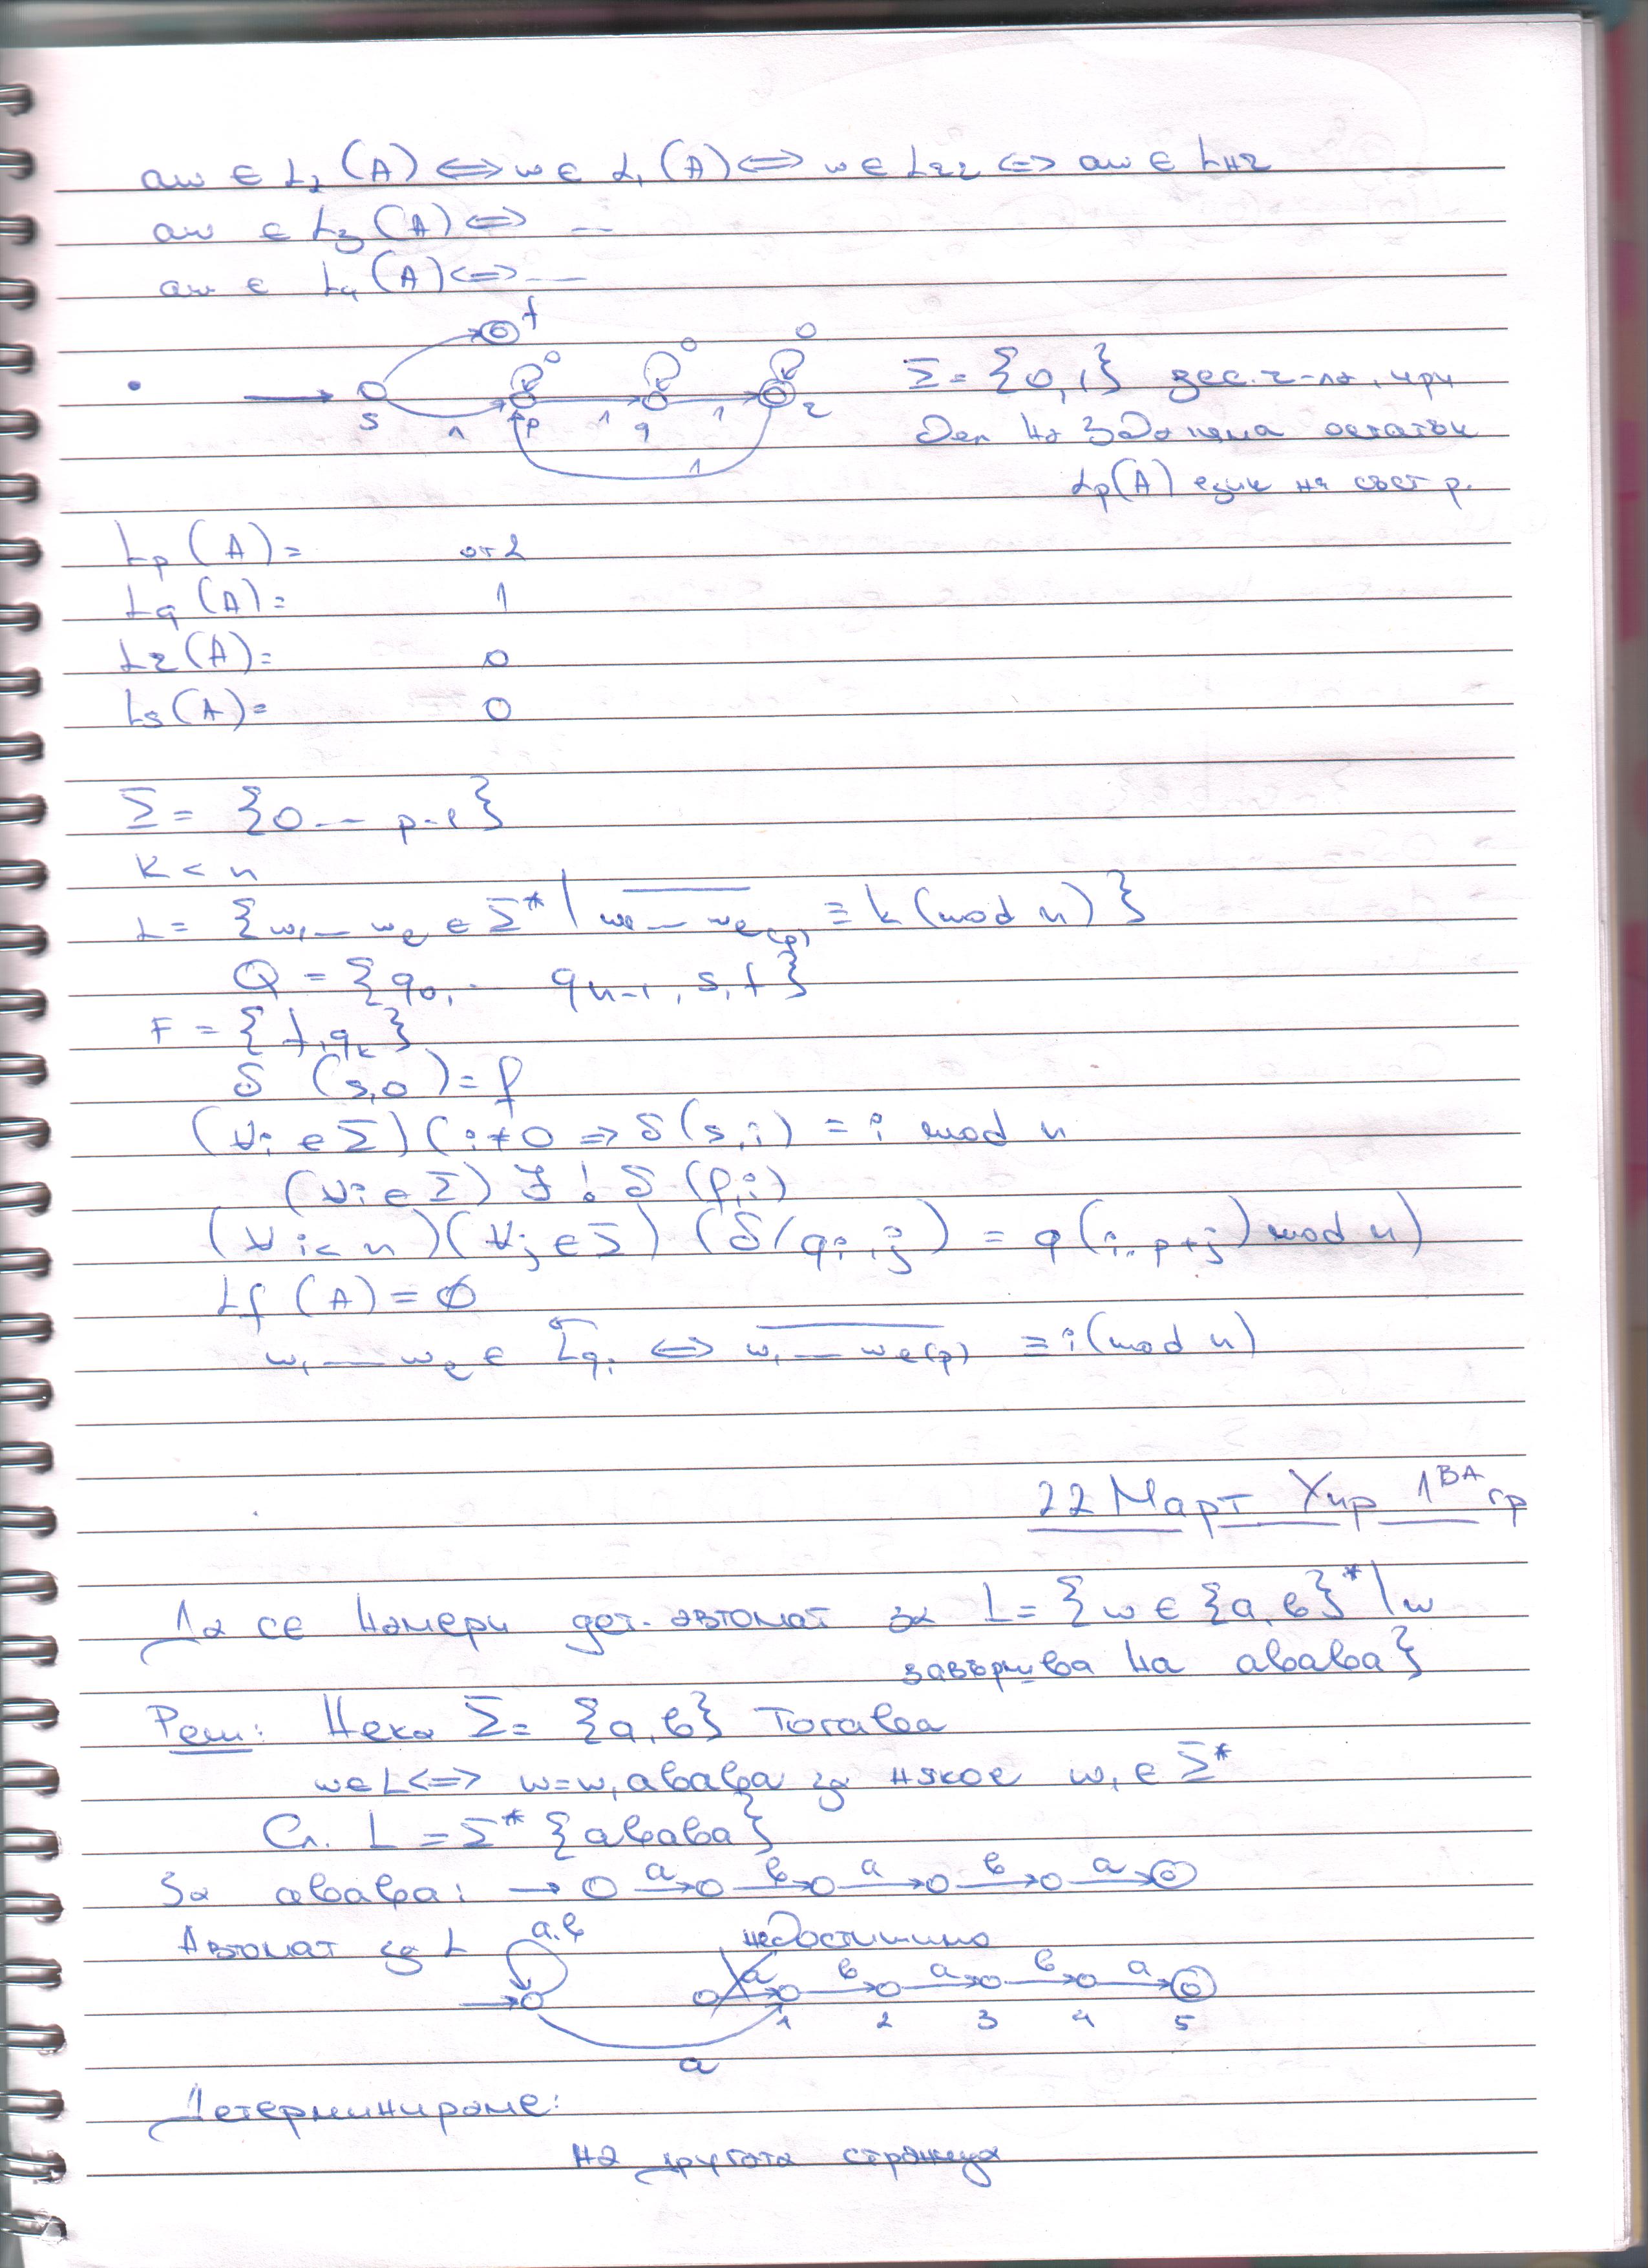 aw ∈ L₂(A) ⟺ w ∈ L₁(A) ⟺ w ∈ L₂₂ ⟺ aw ∈ Lнг
aw ∈ L₃(A) ⟺ ...
aw ∈ L₄(A) ⟺ ...
f
0 0 0
s 1 p 1 q 1 r
1
Σ = {0,1} дес. ч-ла, при
дел на 3 да няма остатък
Lp(A) език на съст p.
Lp(A) = ост 2
Lq(A) = 1
Lr(A) = 0
Ls(A) = 0
Σ = {0 ... p-1}
k < n
L = {w₁ ... wₑ ∈ Σ* | w₁ ... wₑ(p) ≡ k (mod n)}
Q = {q₀, ... qₙ₋₁, s, f}
F = {f, qₖ}
δ (s,0) = f
(∀i ∈ Σ)(i ≠ 0 ⇒ δ(s,i) = i mod n
(∀i ∈ Σ) ∄! δ (f,i)
(∀i < n)(∀j ∈ Σ) (δ(qᵢ,j) = q(i.p+j) mod n)
Lf (A) = ∅
w₁ ... wₑ ∈ Lqᵢ ⟺ w₁ ... wₑ(p) ≡ i (mod n)
22 Март Хир 1ва гр
Да се намери дет. автомат за L = {w ∈ {a,в}* | w
завършва на aвaвa}
Реш: Нека Σ = {a,в} Тогава
w ∈ L ⟺ w = w₁aвaвa за някое w₁ ∈ Σ*
Сл. L = Σ* {aвaвa}
За aвaвa: → a в a в a
Автомат за L a,в недостижимо
a в a в a
1 2 3 4 5
a
Детерминираме:
на другата страница